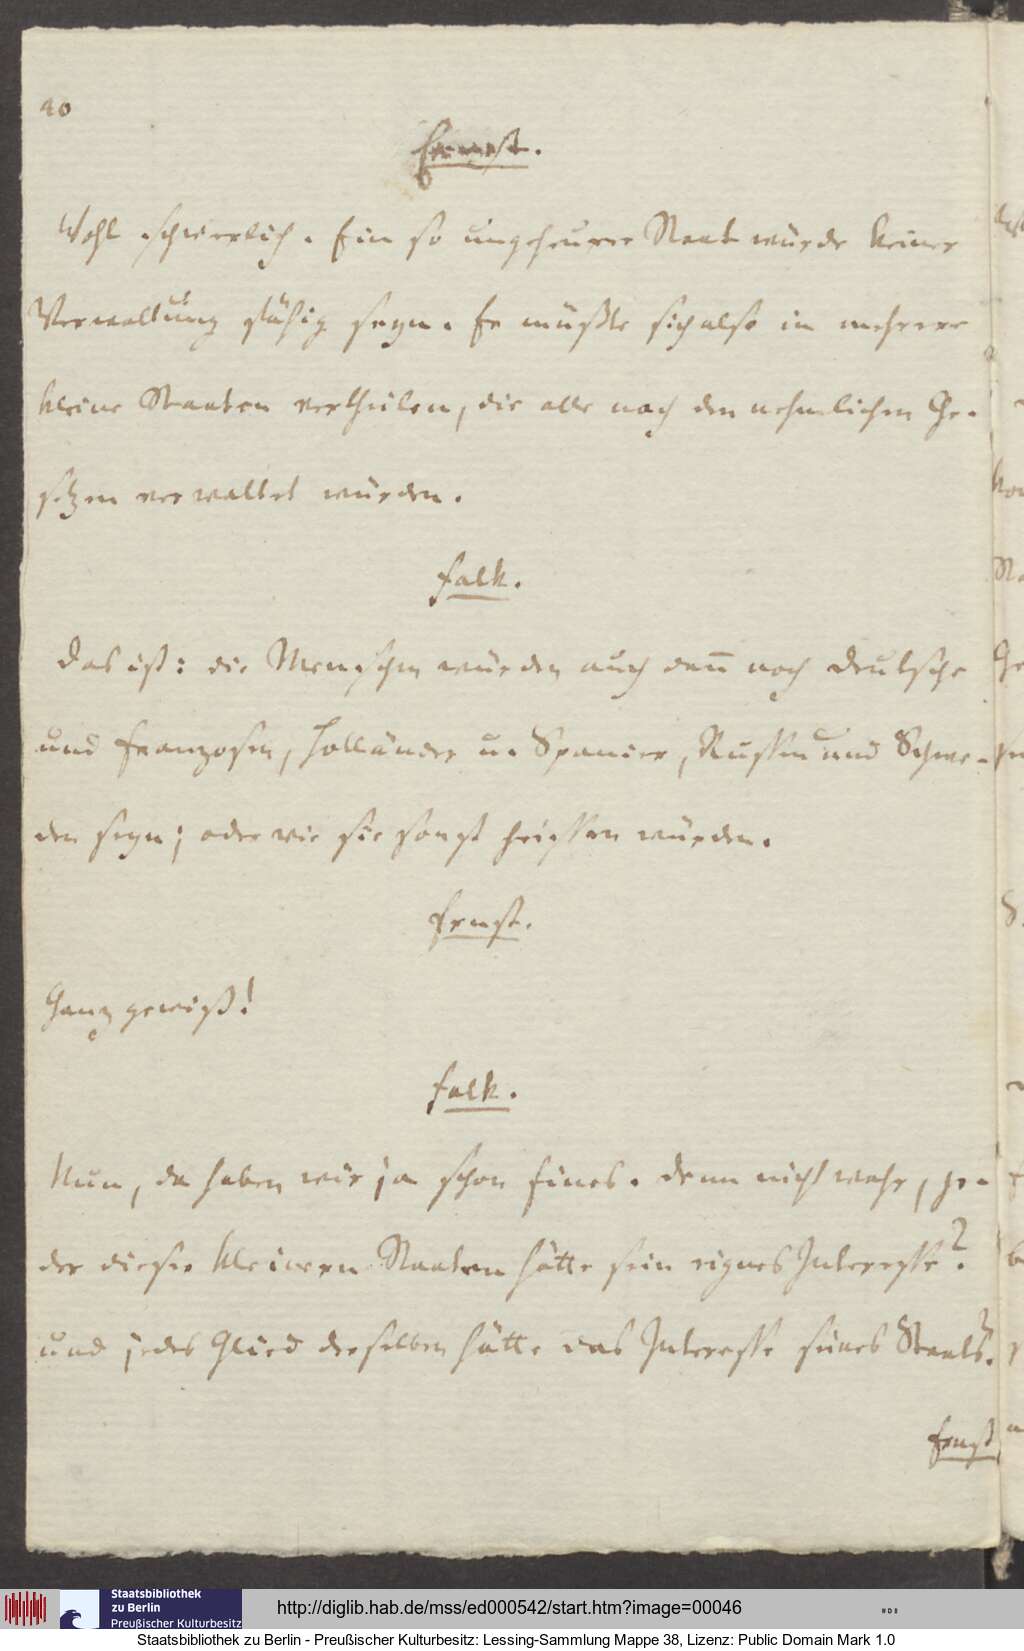 40
Ernst.
Wohl schwerlich. Ein so ungeheurer Staat würde keiner
Verwaltung fähig seyn. Er müßte sich also in mehrere
kleine Staaten vertheilen, die alle nach den nehmlichen Ge-
setzen verwaltet würden.
Falk.
Das ist: die Menschen würden auch dañ noch Deutsche
und Franzosen, Holländer u. Spanier, Russen und Schwe-
den seyn; oder wie sie sonst heissen würden.
Ernst.
Ganz gewiß!
Falk.
Nun, da haben wir ja schon Eines. Denn nicht wahr, je-
der dieser kleinern Staaten hätte sein eignes Interesse?
und jedes Glied derselben hätte das Interesse seines Staats?
Ernst
Staatsbibliothek
zu Berlin
Preußischer Kulturbesitz
http://diglib.hab.de/mss/ed000542/start.htm?image=00046
Staatsbibliothek zu Berlin - Preußischer Kulturbesitz: Lessing-Sammlung Mappe 38, Lizenz: Public Domain Mark 1.0